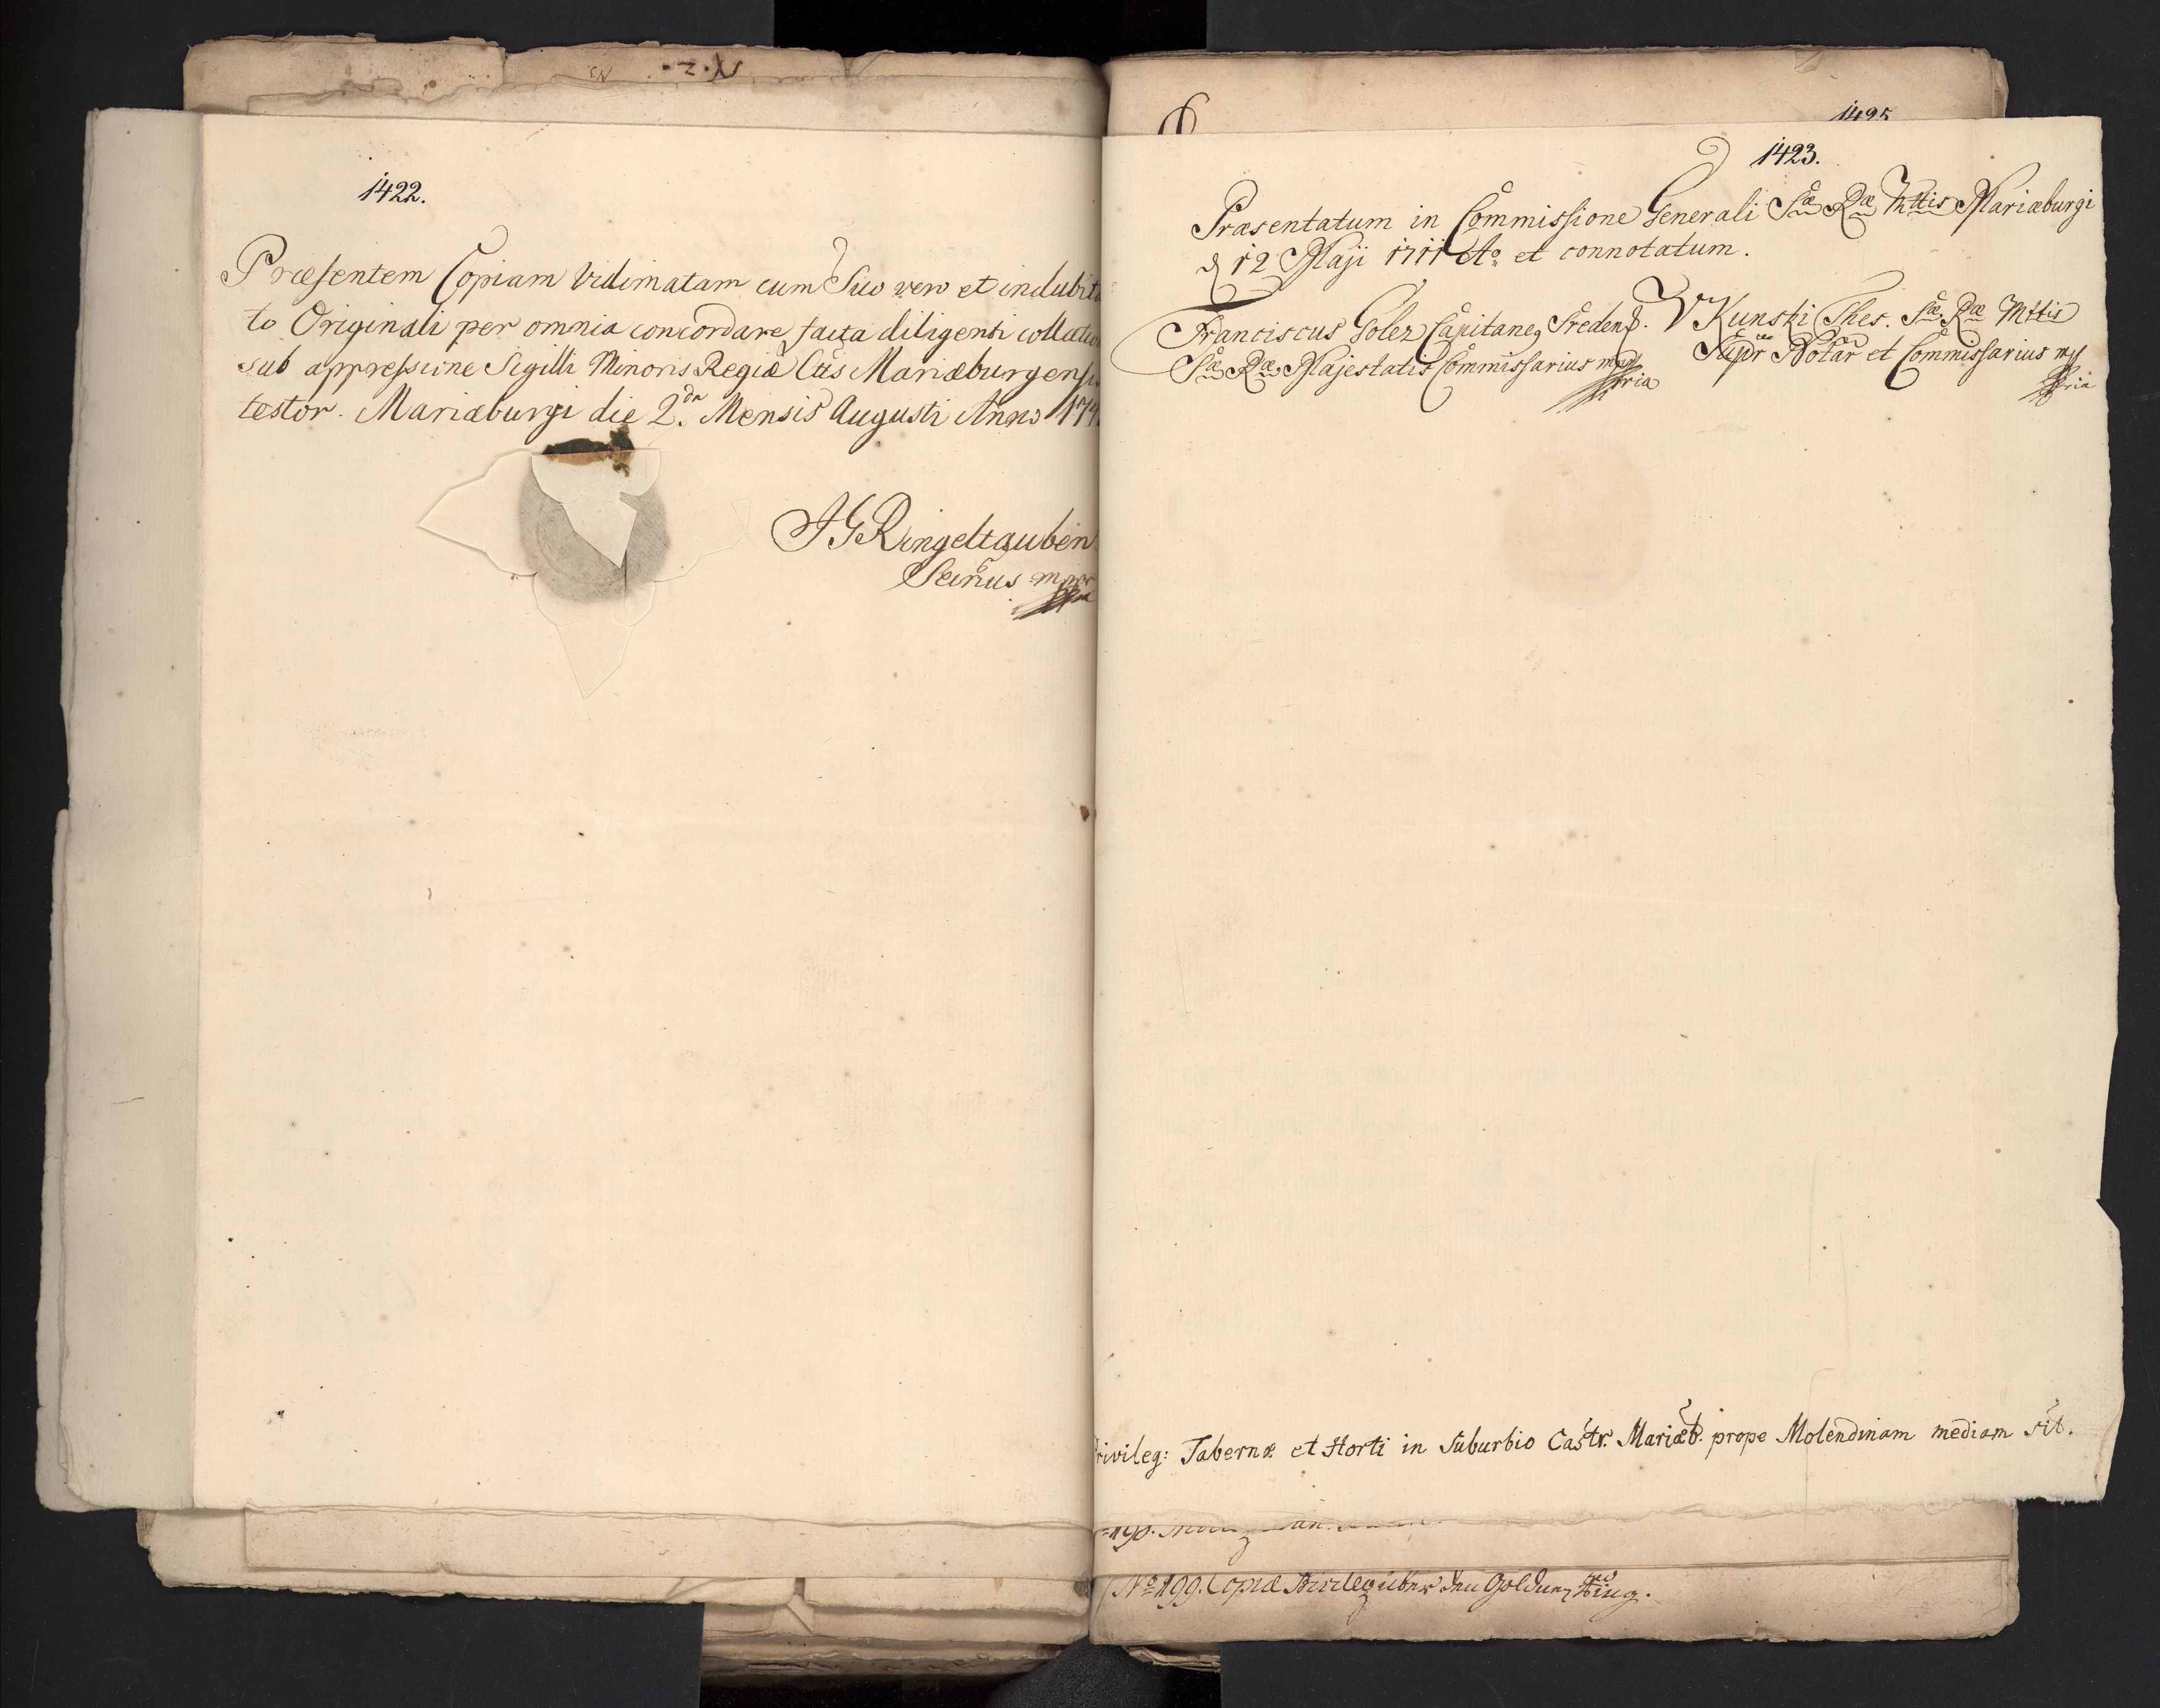 1422.
Præsentem Copiam Vidimatam cum Suo vero et indubita
to Originali per omnia concordare, facta diligenti collatio
sub appressione Sigilli Minoris Regiæ Cttis Mariæburgensis
testor. Mariæburgi die 2.da Mensis Augusti Anno 174
JGRingeltauben
Secrius mpr
1425
1423.
Præsentatum in Commissione Generali Sæ Ræ Mttis Mariæburgi
d 12 Maji 1711 Ao et connotatum.
Franciscus Golez Capitaneq Sredens. VKunski Thes. Sæ Ræ Mttis
Sæ Ræ Majestatis Commissarius mp Supr Notar et Commissarius mp
pria pria
rivileg: Tabernæ et Horti in Suburbio Castr. Mariæb. prope Molendinam mediam sit.
No 199. Copia Privileg über den Goldnen Ring.